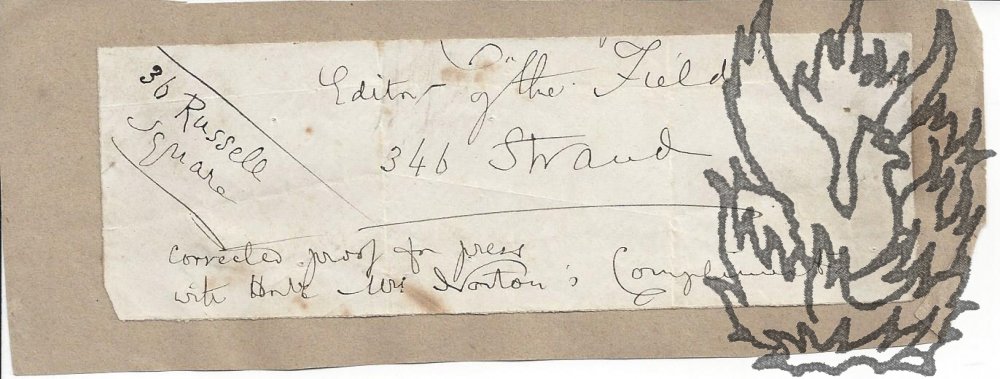 36 Russell
Square
Editor of "the Field"
346 Strand
Corrected proof for press
with Honble Mrs Norton's Compliments